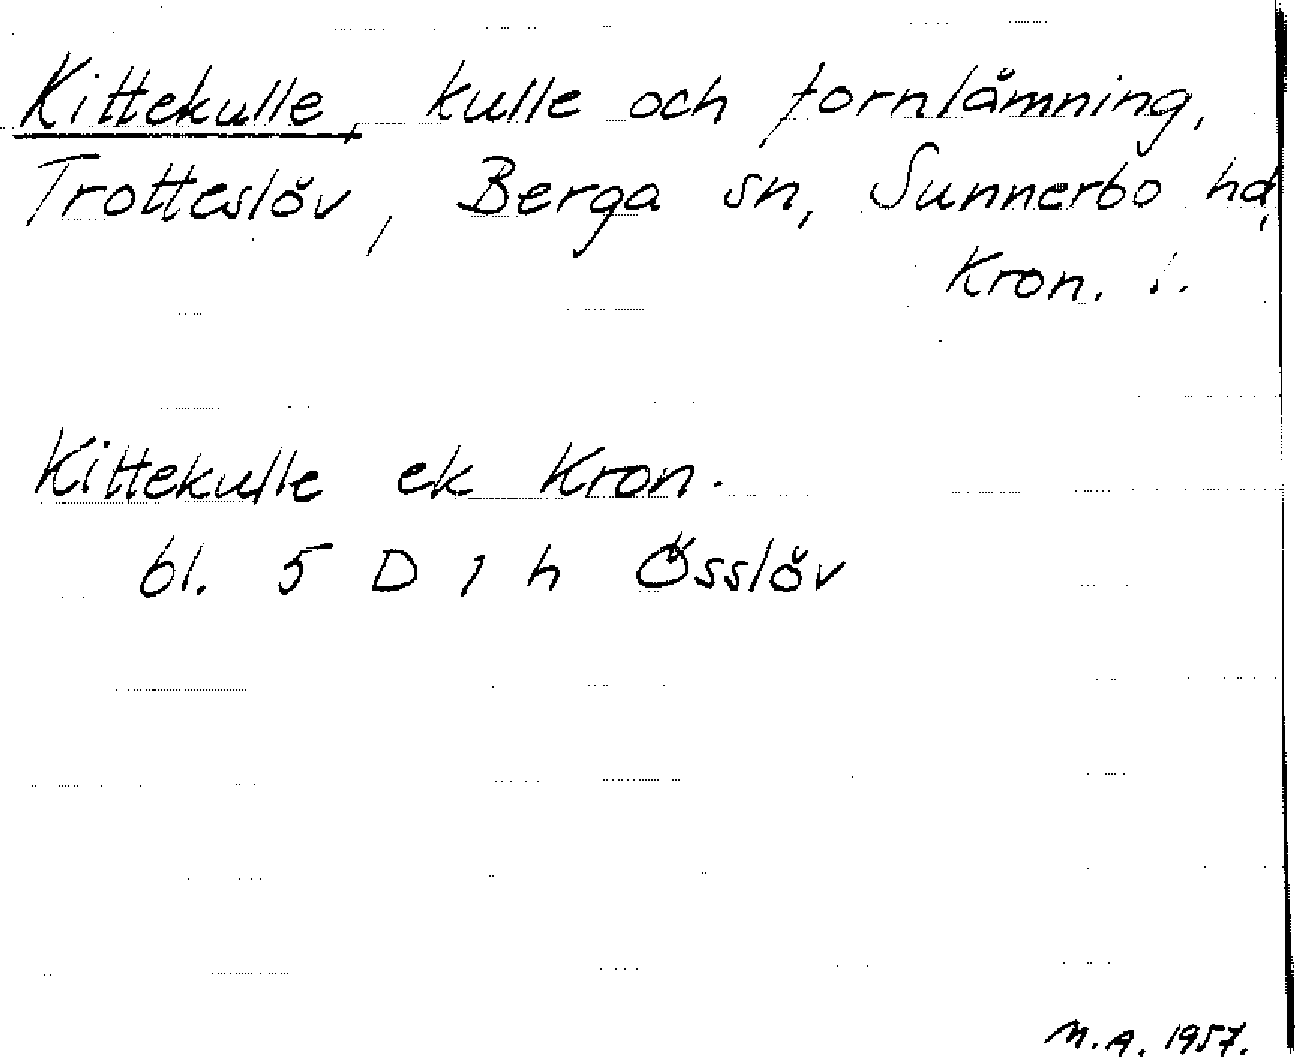 Kittekulle, kulle och fornlämning,
Trotteslöv, Berga sn, Sunnerbo hd,
Kron. l.
Kittekulle ek Kron.
bl. 5 D 1 h Össlöv
M.A. 1957.